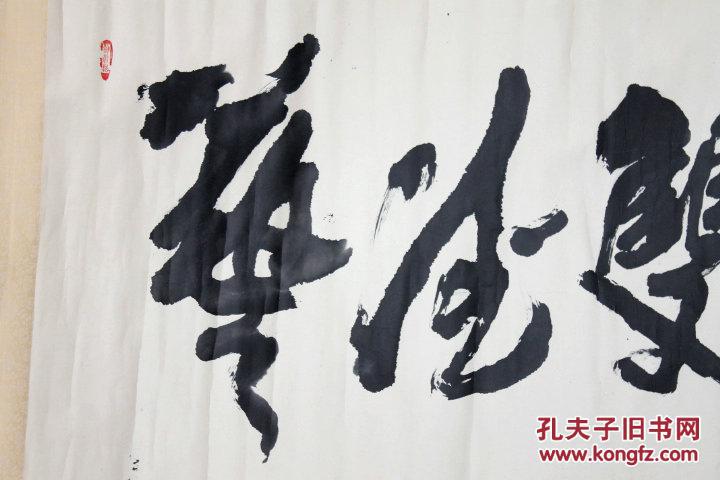 藝德雙
孔夫子旧书网
www.kongfz.com